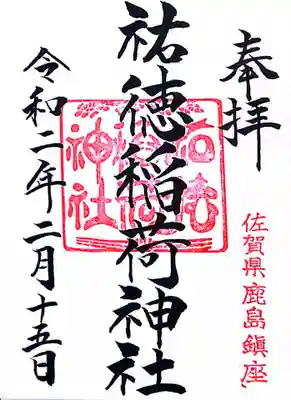 奉拝
佐賀県鹿島鎮座
祐徳稲荷神社
令和二年二月十五日